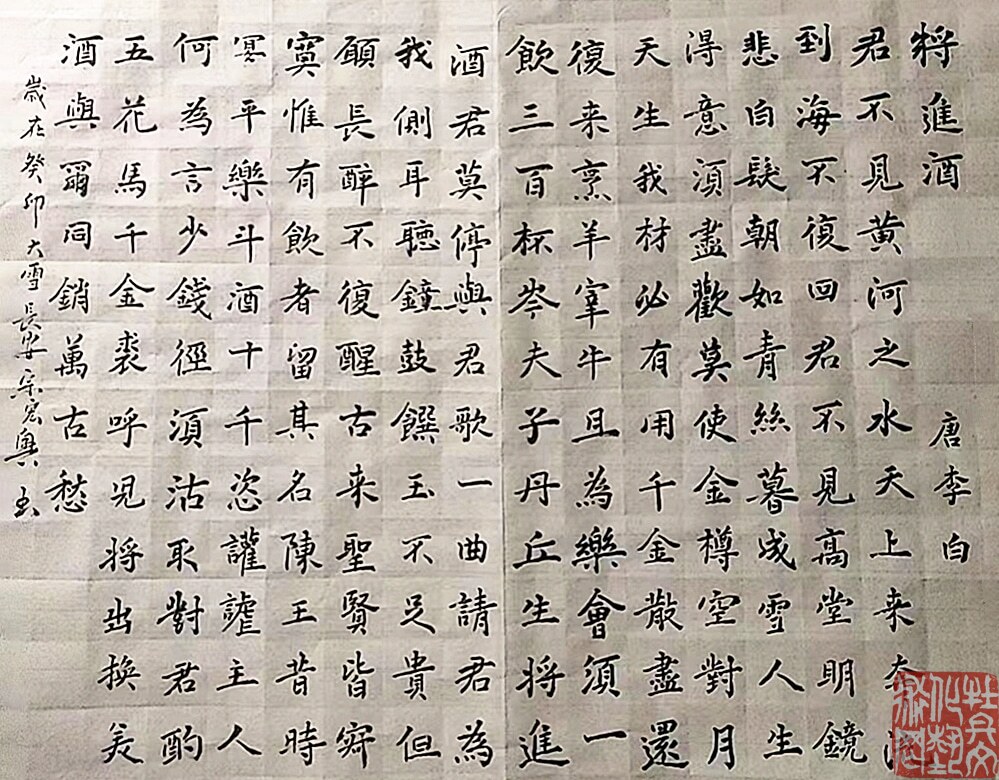 將進酒 唐李白
君不見黄河之水天上来奔流
到海不復回君不見高堂明鏡
悲白髮朝如青絲暮成雪人生
得意須盡歡莫使金樽空對月
天生我材必有用千金散盡還
復来烹羊宰牛且為樂會須一
飲三百杯岑夫子丹丘生将進
酒君莫停與君歌一曲請君為
我側耳聽鐘鼓饌玉不足貴但
願長醉不復醒古来聖賢皆寂
寞惟有飲者留其名陳王昔時
宴平樂斗酒十千恣讙謔主人
何為言少錢徑須沽取對君酌
五花馬千金裘呼児将出換美
酒與爾同銷萬古愁
歲在癸卯大雪長安宗宏興书